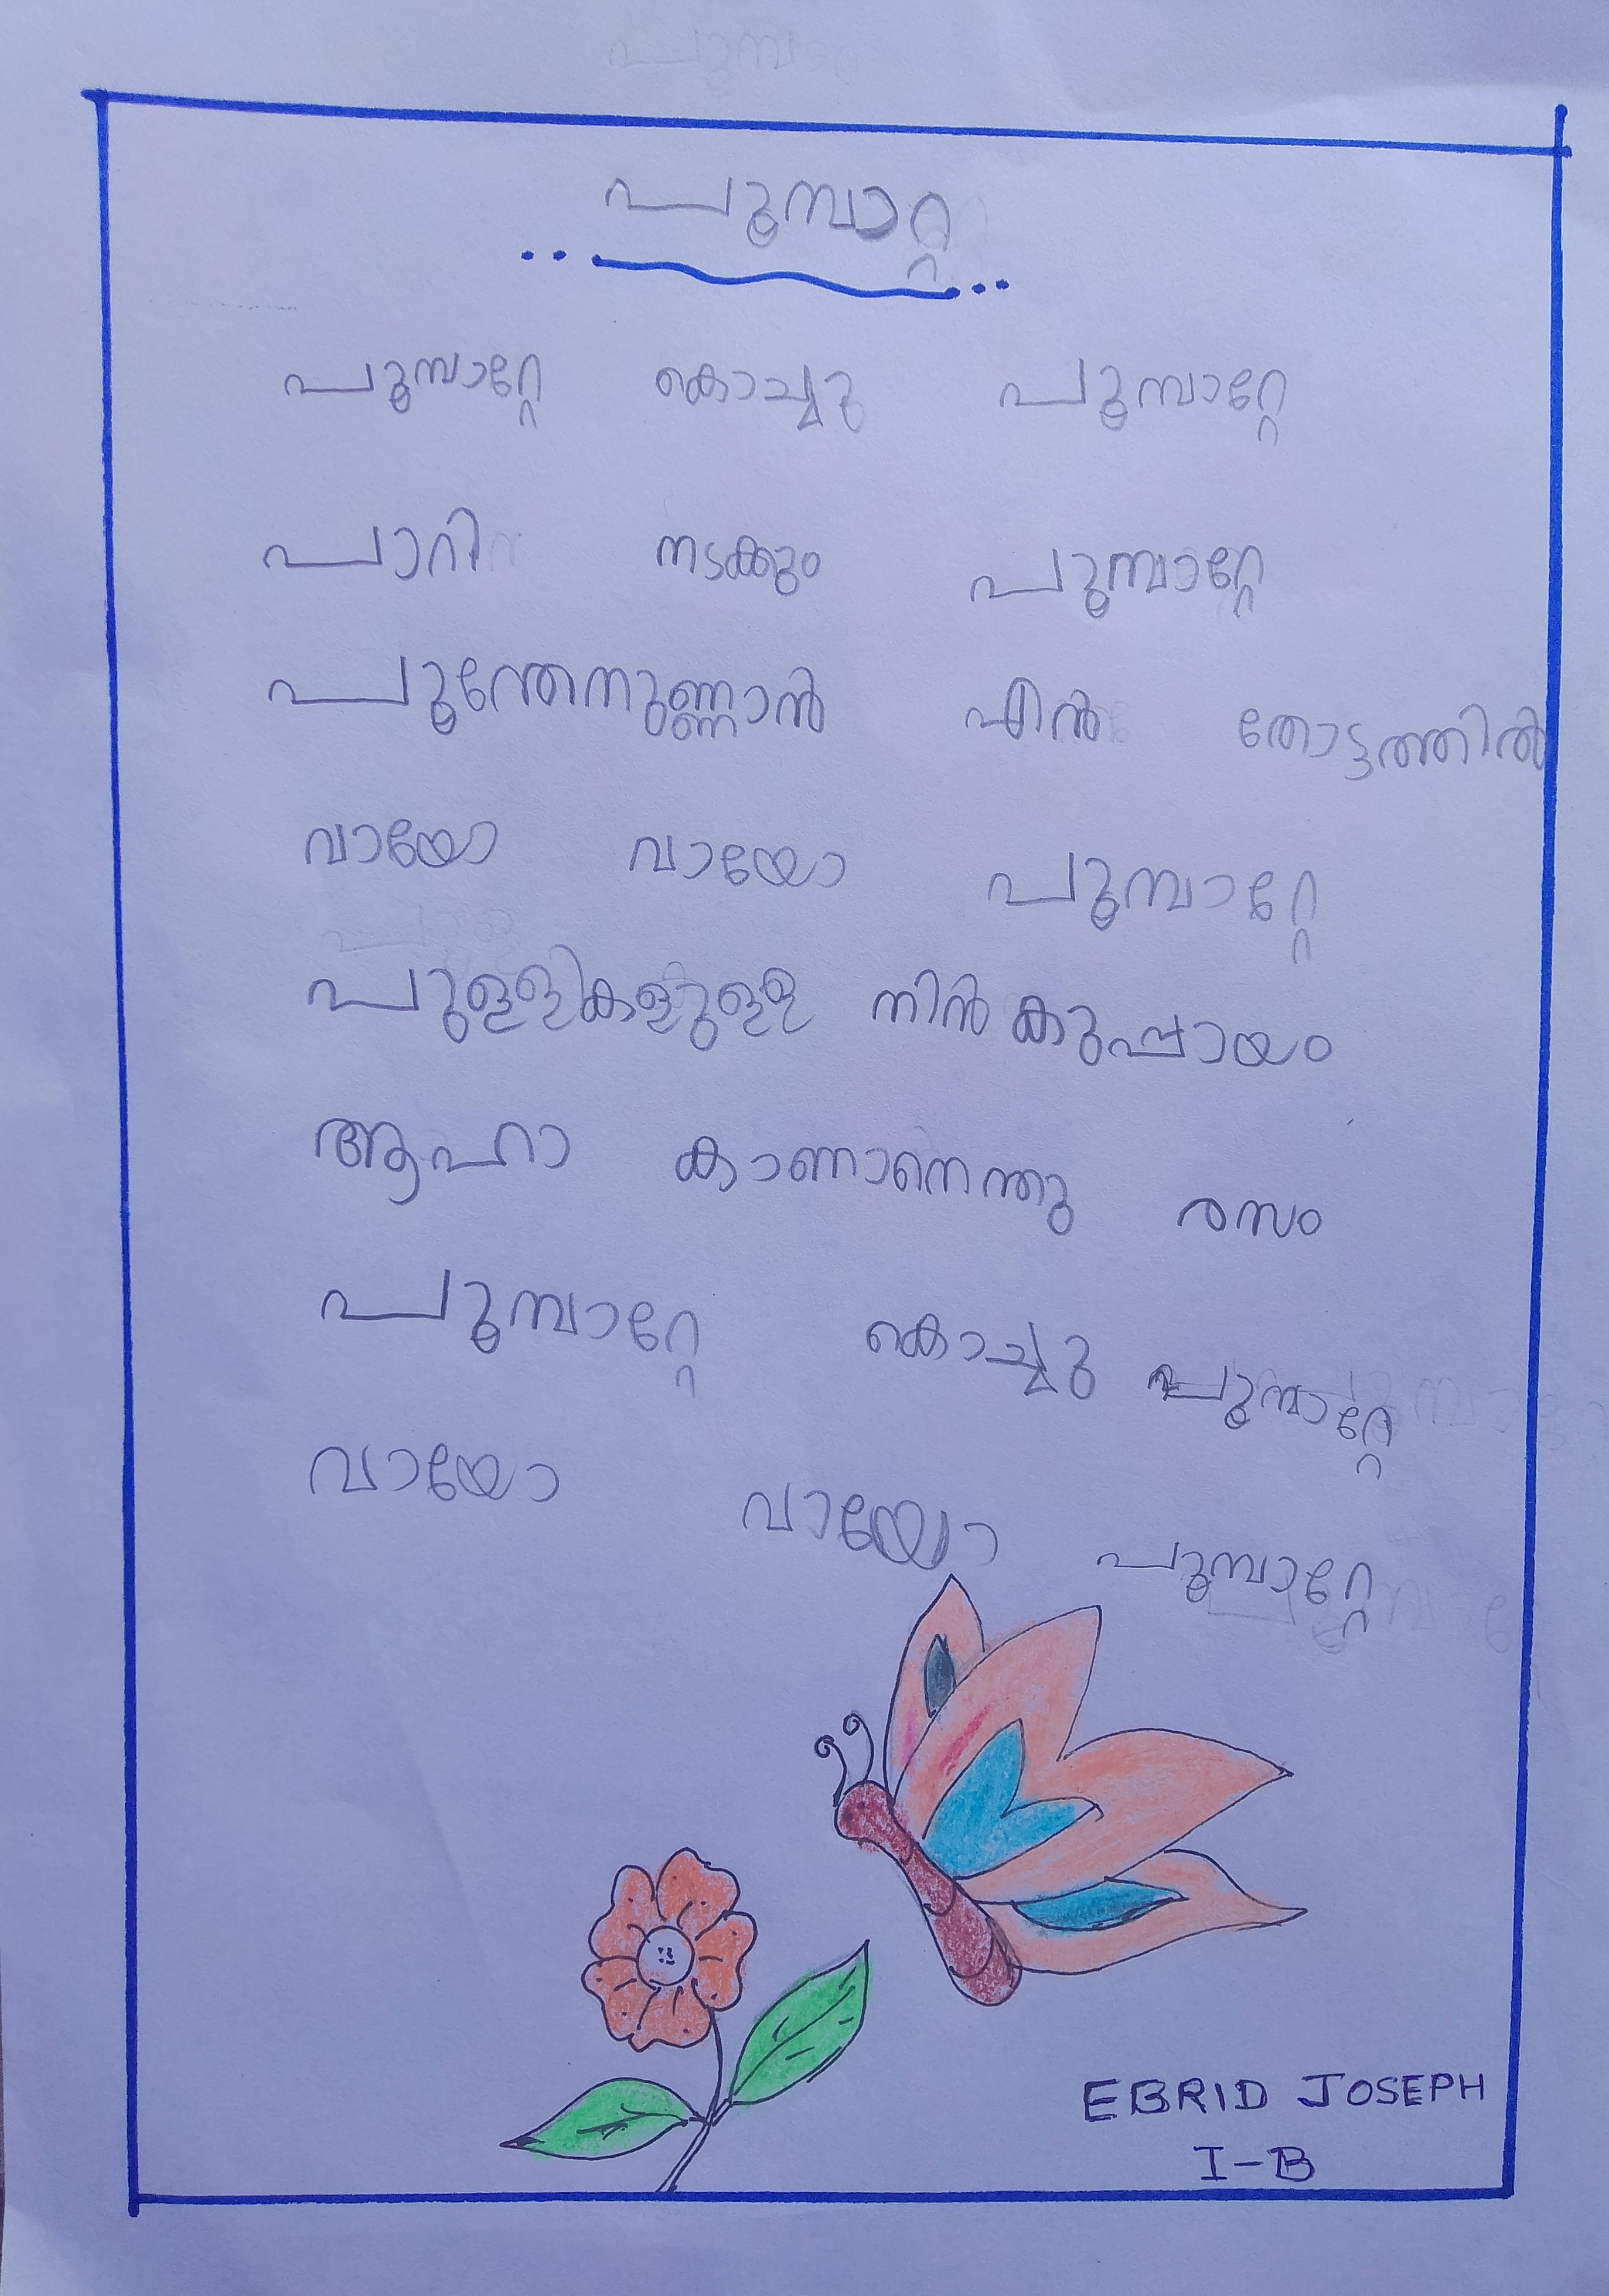 പൂമ്പാറ്റ
പൂമ്പാറ്റേ കൊച്ചു പൂമ്പാറ്റേ
പാറി നടക്കും പൂമ്പാറ്റേ
പൂന്തേനുണ്ണാൻ എൻ തോട്ടത്തിൽ
വായോ വായോ പൂമ്പാറ്റേ
പുള്ളികളുള്ള നിൻ കുപ്പായം
ആഹാ കാണാനെന്തു രസം
പൂമ്പാറ്റേ കൊച്ചു പൂമ്പാറ്റേ
വായോ വായോ പൂമ്പാറ്റേ
EBRID JOSEPH
I-B